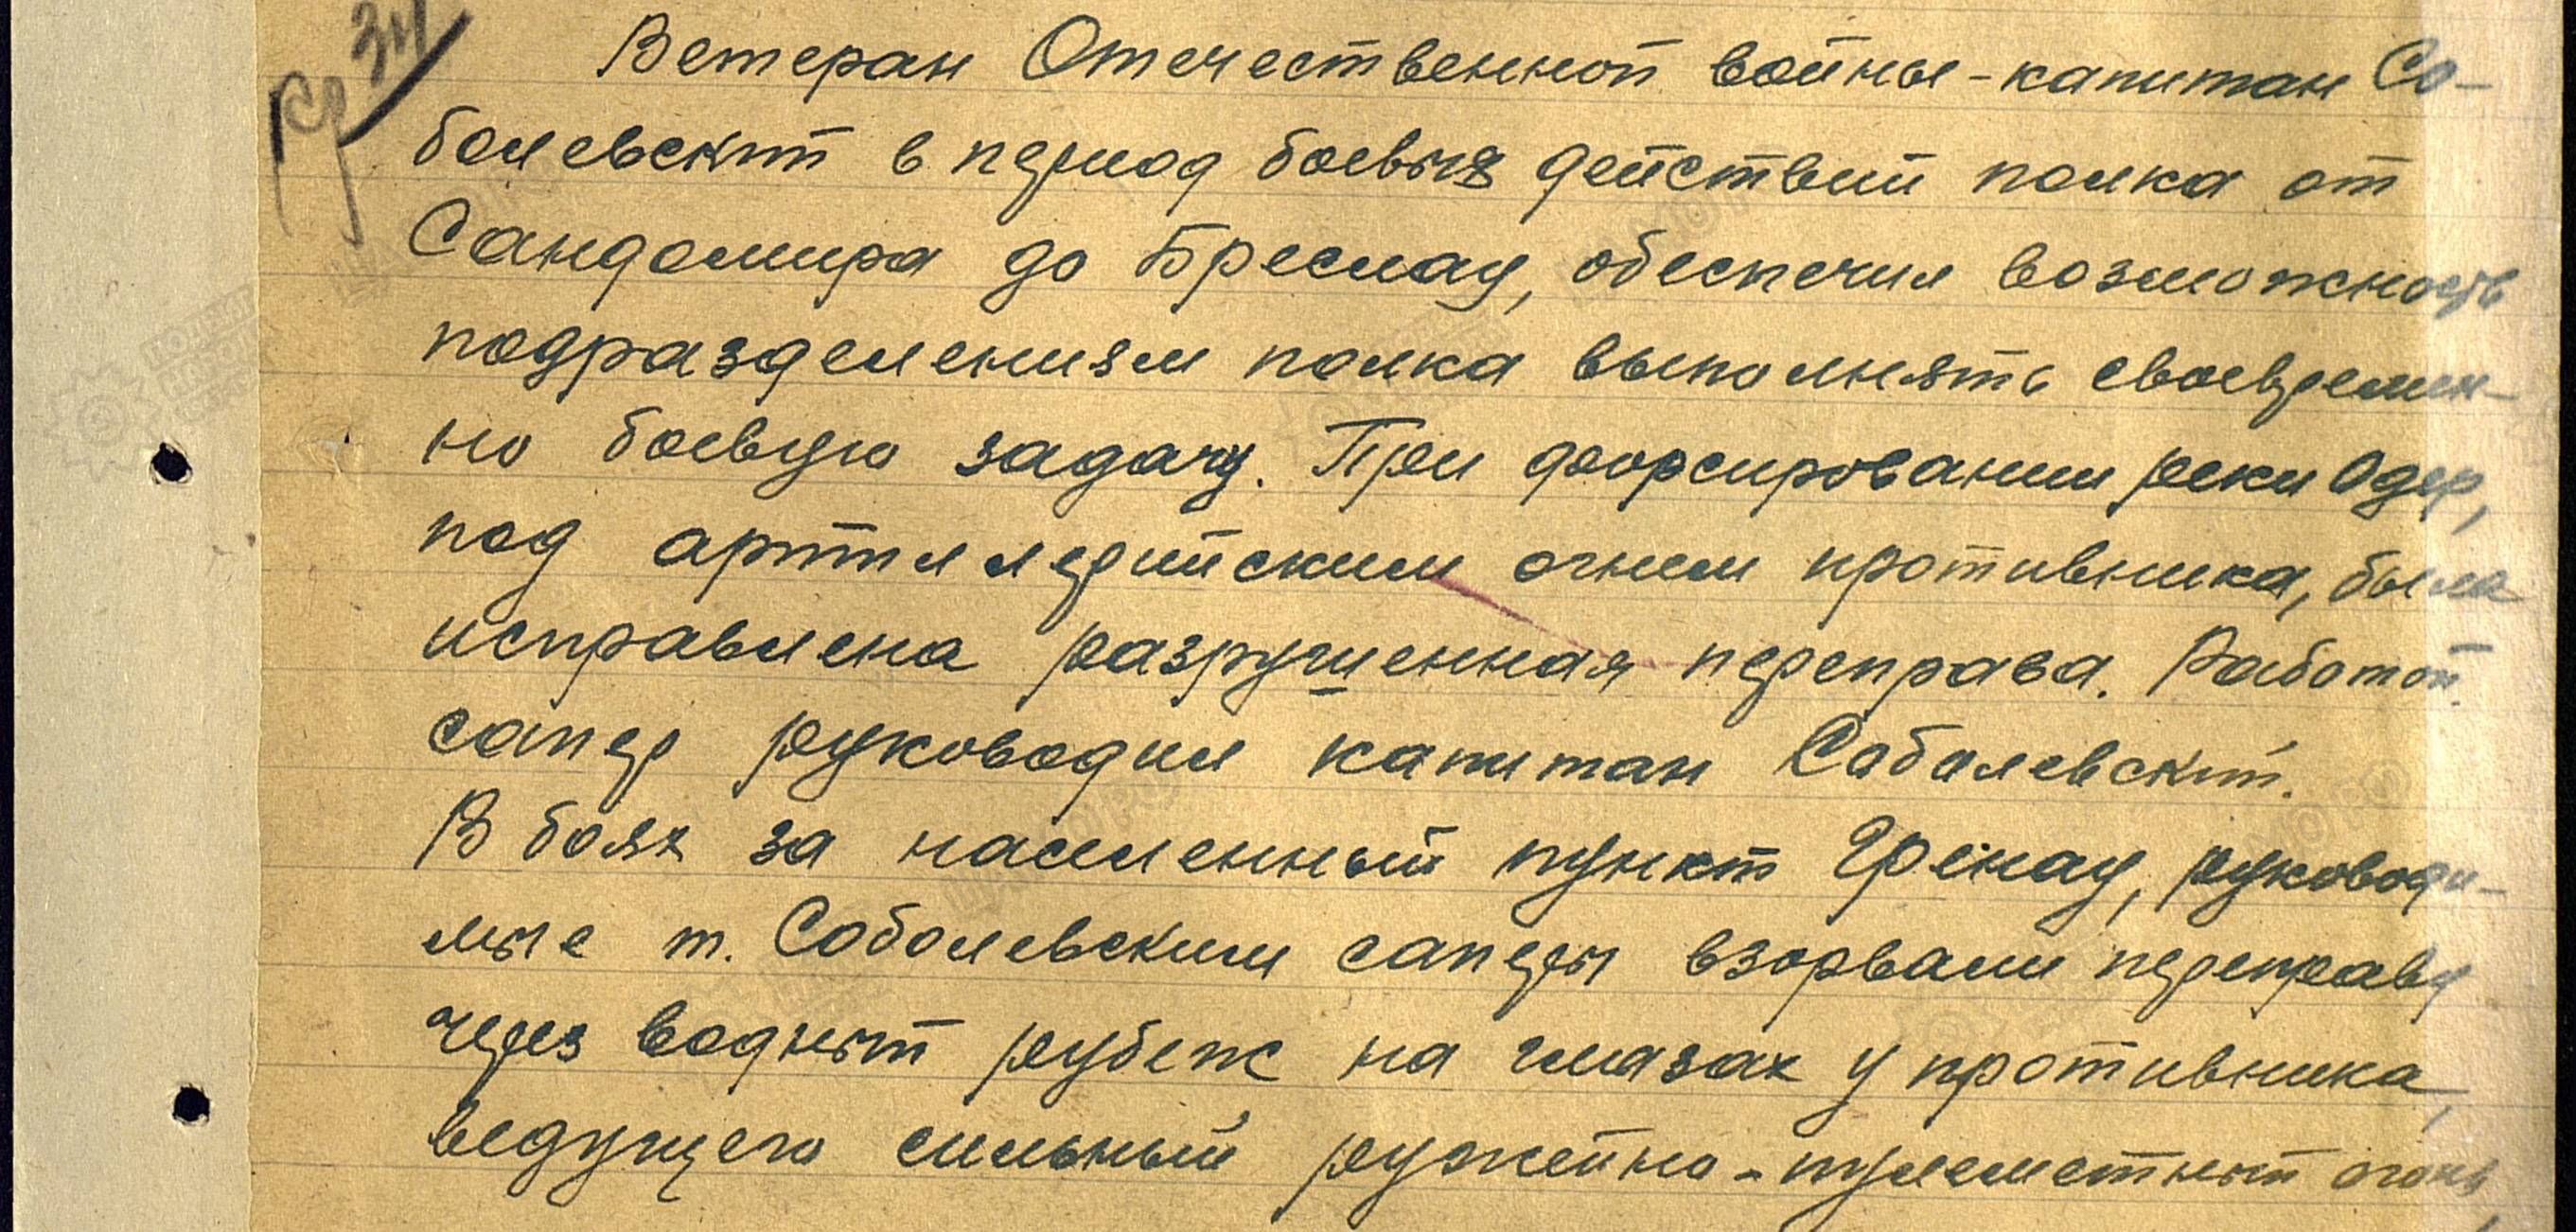 Ветеран Отечественной войны - капитан Со-
болевский в период боевых действий полка от
Сандомира до Бреслау, обеспечил возможность
подразделениям полка выполнять своевремен-
но боевую задачу. При форсировании реки Одер,
под артиллерийским огнем противника, была
исправлена разрушенная переправа. Работой
сапер руководил капитан Соболевский.
В боях за населенный пункт Гренау, руководи-
мые т. Соболевским саперы взорвали переправу
через водный рубеж на глазах у противника,
ведущего сильный ружейно-пулеметный огонь